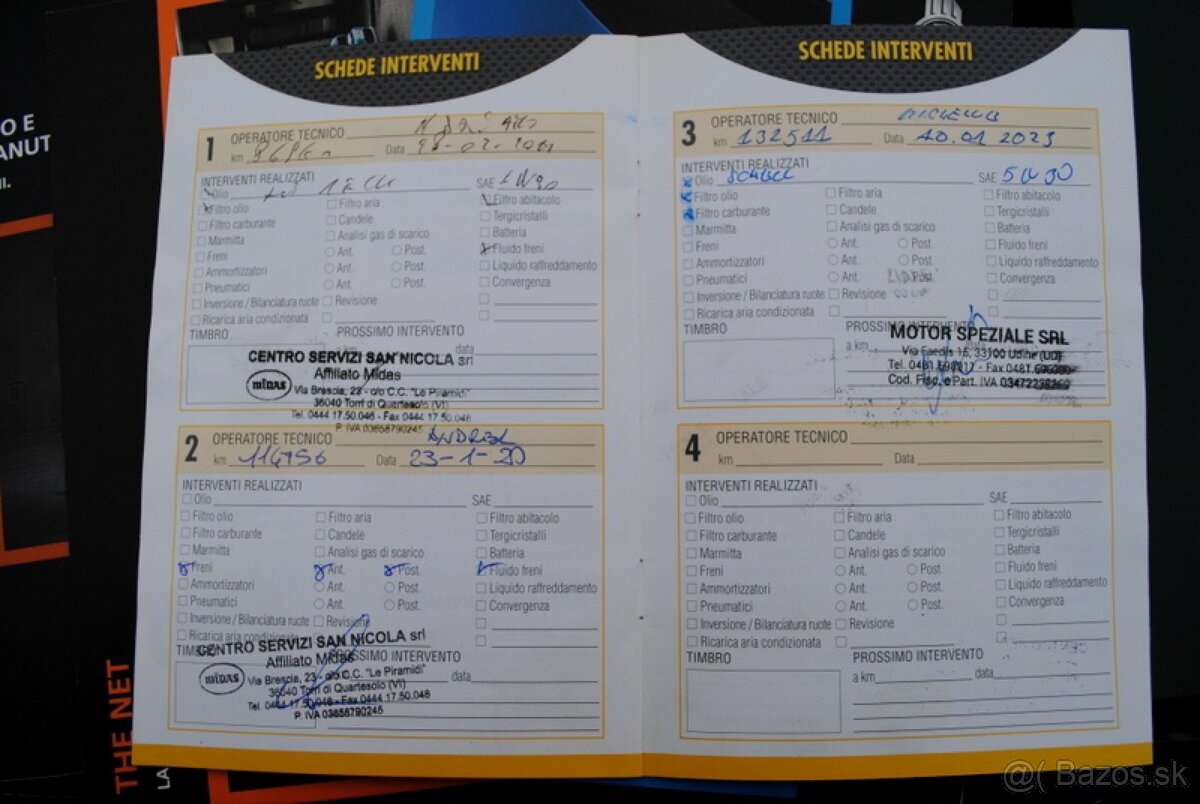 O E
ANUT
NI.
THE NET
LA
SCHEDE INTERVENTI
1 OPERATORE TECNICO
km Data
INTERVENTI REALIZZATI
Olio SAE
Filtro olio Filtro aria Filtro abitacolo
Filtro carburante Candele Tergicristalli
Marmitta Analisi gas di scarico Batteria
Freni Ant. Post. Fluido freni
Ammortizzatori Ant. Post. Liquido raffreddamento
Pneumatici Ant. Post. Convergenza
Inversione / Bilanciatura ruote Revisione
Ricarica aria condizionata
TIMBRO PROSSIMO INTERVENTO
a km data
CENTRO SERVIZI SAN NICOLA srl
Affiliato Midas
MIDAS Via Brescia, 23 - c/o C.C. "Le Piramidi"
36040 Torri di Quartesolo (VI)
Tel. 0444 17.50.046 - Fax 0444 17.50.046
P. IVA 03658790245
2 OPERATORE TECNICO
km 114756 Data 23-1-20
INTERVENTI REALIZZATI
Olio SAE
Filtro olio Filtro aria Filtro abitacolo
Filtro carburante Candele Tergicristalli
Marmitta Analisi gas di scarico Batteria
Freni Ant. Post. Fluido freni
Ammortizzatori Ant. Post. Liquido raffreddamento
Pneumatici Ant. Post. Convergenza
Inversione / Bilanciatura ruote Revisione
Ricarica aria condizionata
TIMBRO PROSSIMO INTERVENTO
data
CENTRO SERVIZI SAN NICOLA srl
Affiliato Midas
MIDAS Via Brescia, 23 - c/o C.C. "Le Piramidi"
36040 Torri di Quartesolo (VI)
Tel. 0444 17.50.046 - Fax 0444 17.50.046
P. IVA 03658790245
SCHEDE INTERVENTI
3 OPERATORE TECNICO
km 132511 Data
INTERVENTI REALIZZATI
Olio SAE 5W30
Filtro olio Filtro aria Filtro abitacolo
Filtro carburante Candele Tergicristalli
Marmitta Analisi gas di scarico Batteria
Freni Ant. Post. Fluido freni
Ammortizzatori Ant. Post. Liquido raffreddamento
Pneumatici Ant. Post. Convergenza
Inversione / Bilanciatura ruote Revisione
Ricarica aria condizionata
TIMBRO PROSSIMO INTERVENTO
a km
MOTOR SPEZIALE SRL
15, 33100 Udine (UD)
Tel. - Fax
Cod. Fisc. e Part. IVA
4 OPERATORE TECNICO
km Data
INTERVENTI REALIZZATI
Olio SAE
Filtro olio Filtro aria Filtro abitacolo
Filtro carburante Candele Tergicristalli
Marmitta Analisi gas di scarico Batteria
Freni Ant. Post. Fluido freni
Ammortizzatori Ant. Post. Liquido raffreddamento
Pneumatici Ant. Post. Convergenza
Inversione / Bilanciatura ruote Revisione
Ricarica aria condizionata
TIMBRO PROSSIMO INTERVENTO
a km data
@( Bazos.sk